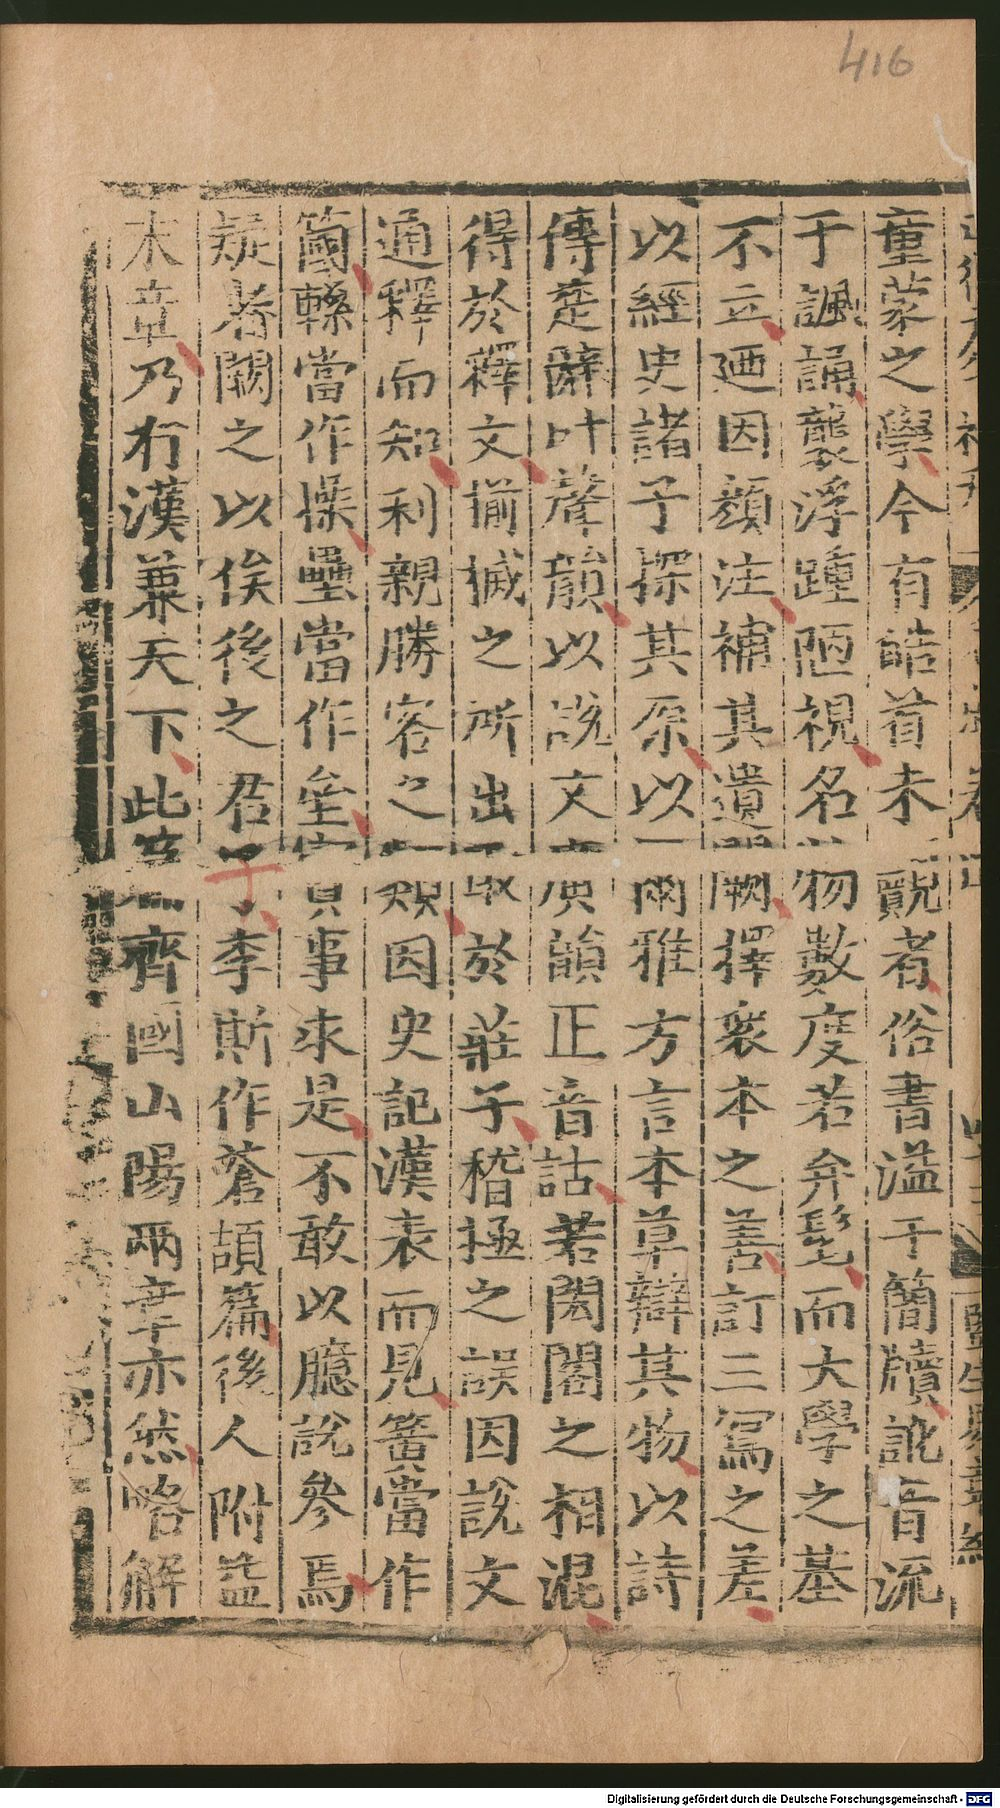 416
童蒙之學今有皓首未覩者俗書溢于簡牘訛音流
于諷誦襲浮踵陋視名物數度若弁髦而大學之基
不立迺因顔注補其遺闕擇衆本之善訂三寫之差
以經史諸子探其原以爾雅方言本草辯其物以詩
傳楚辭叶聲韻以說文廣韻正音詁若閎閤之相混
得於釋文揃摵之所出取於莊子稽極之誤因說文
通釋而知利親勝客之 因史記漢表而見簧當作
簂轑當作橑壘當作垒實事求是不敢以臆說參焉
疑者闕之以俟後之君子李斯作蒼頡篇後人附益
末章乃有漢兼天下此 齊國山陽兩章亦然略解
Digitalisierung gefördert durch die Deutsche Forschungsgemeinschaft - DFG